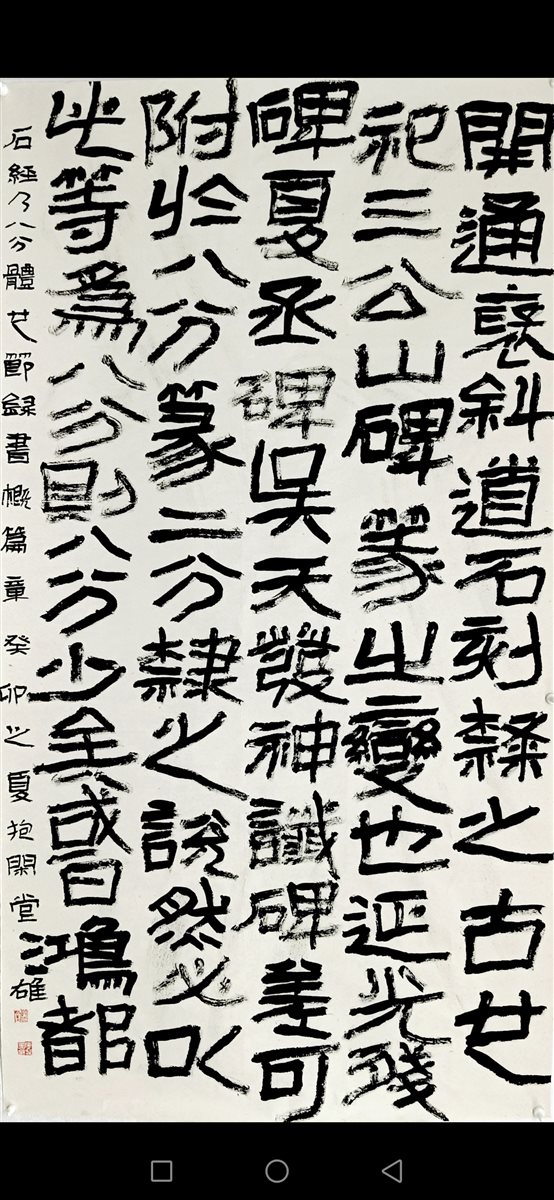 開通褒斜道石刻隸之古也
祀三公山碑篆之變也延光殘
碑夏承碑吳天發神讖碑差可
附於八分篆二分隸之說然必以
此等為八分則八分少矣或曰鴻都
石經乃八分體也節録書概篇章癸卯之夏抱閑堂雄